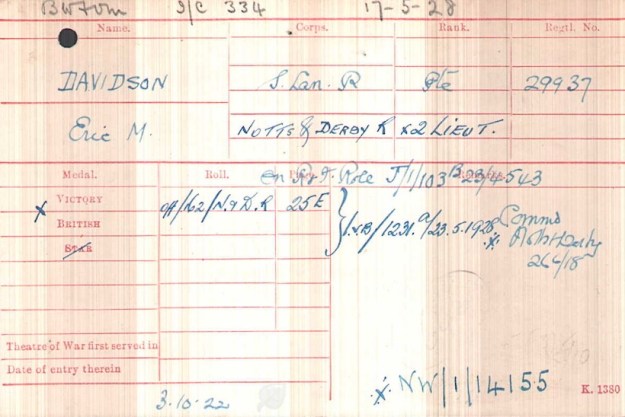 BWTVM S/C 334 17-5-28
Name. Corps. Rank. Regtl. No.
DAVIDSON S. Lan. R Pte 29937
Eric M. NOTTS & DERBY R x2 LIEUT.
Medal. Roll. Page. On R & F. Roll J/1/103 B 23/4543
VICTORY Off/162/N.&D.R 25E
x BRITISH I.V.B/1231.a/23.5.1928 Commd
STAR Notts & Derby
26/4/18
Theatre of War first served in
Date of entry therein
NW/1/14155 K. 1380
3.10.22